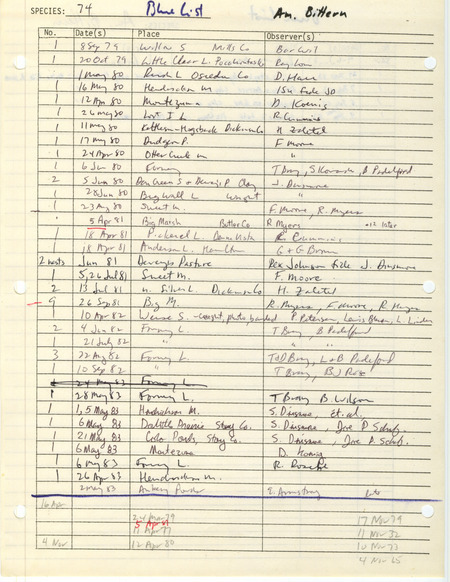 SPECIES: 74 Blue List Am. Bittern
No. Date(s) Place Observer(s)
1 8 Sep 79 Willow S Mills Co Barwil
1 20 Oct 79 Little Clear L. Pocahontas Co Ray Low
1 1 May 80 Rush L Osceola Co D. Harr
1 16 May 80 Hendrickson M
1 12 Apr 80 Montezuma D. Koenig
1 26 May 80 Lost I L R. Cummins
1 11 May 80 Dickinson Co H Zaletel
1 17 May 80 Dudgeon P. F moore
1 24 Apr 80 Otter Creek m "
1 6 Jun 80 T Bray, B Padelford
2 5 Jun 80 Clay J. Dinsmore
1 28 Jun 80 Big Wall L Wright "
1 23 Aug 80 Sweet M. F. Moore, R. Myers
5 Apr 81 Big Marsh Butler Co R. Myers
1 18 Apr 81 Pickerel L Buena Vista R. Cummins
1 18 Apr 81 Anderson L. Hamilton G + G Brown
2 nests Jun 81 Dewey's Pasture Rex Johnson fide J. Dinsmore
1 5, 26 Jul 81 Sweet M. F. Moore
2 13 Jul 81 n. Silver L. Dickinson Co H. Zaletel
9 26 Sep 81 Big M. R. Myers, F moore, R. Myers
1 10 Apr 82 Weise S. - caught, photo, banded P Petersen, Lewis Blevins, L. Linder
2 4 Jun 82 Forney L. T Bray, B Padelford
1 21 July 82 " "
3 22 Aug 82 Forney L. T+D Bray, L+B Padelford
1 10 Sep 82 " T Bray, B J Rose
24 May 83 Forney L.
1 28 May 83 Forney L. T Bray B. Wilson
1 1, 5 May 83 Hendrickson M. S. Dinsmore, et. al.
1 6 May 83 Doolittle Prairie Story Co. S. Dinsmore, Joe P. Schuf.
1 21 May 83 Colo Ponds, Story Co. S. Dinsmore, Joe P. Schuf.
1 6 May 83 Montezuma D. Koenig
1 6 May 83 Forney L. R. Rosche
1 26 Apr 83 Hendrickson m.
2 May 83 E. Armstrong
16 Apr
24 Mar 79 17 Nov 79
5 Apr 81
11 Apr 77 11 Nov 82
4 Nov 12 Apr 80 10 Nov 73
4 Nov 65